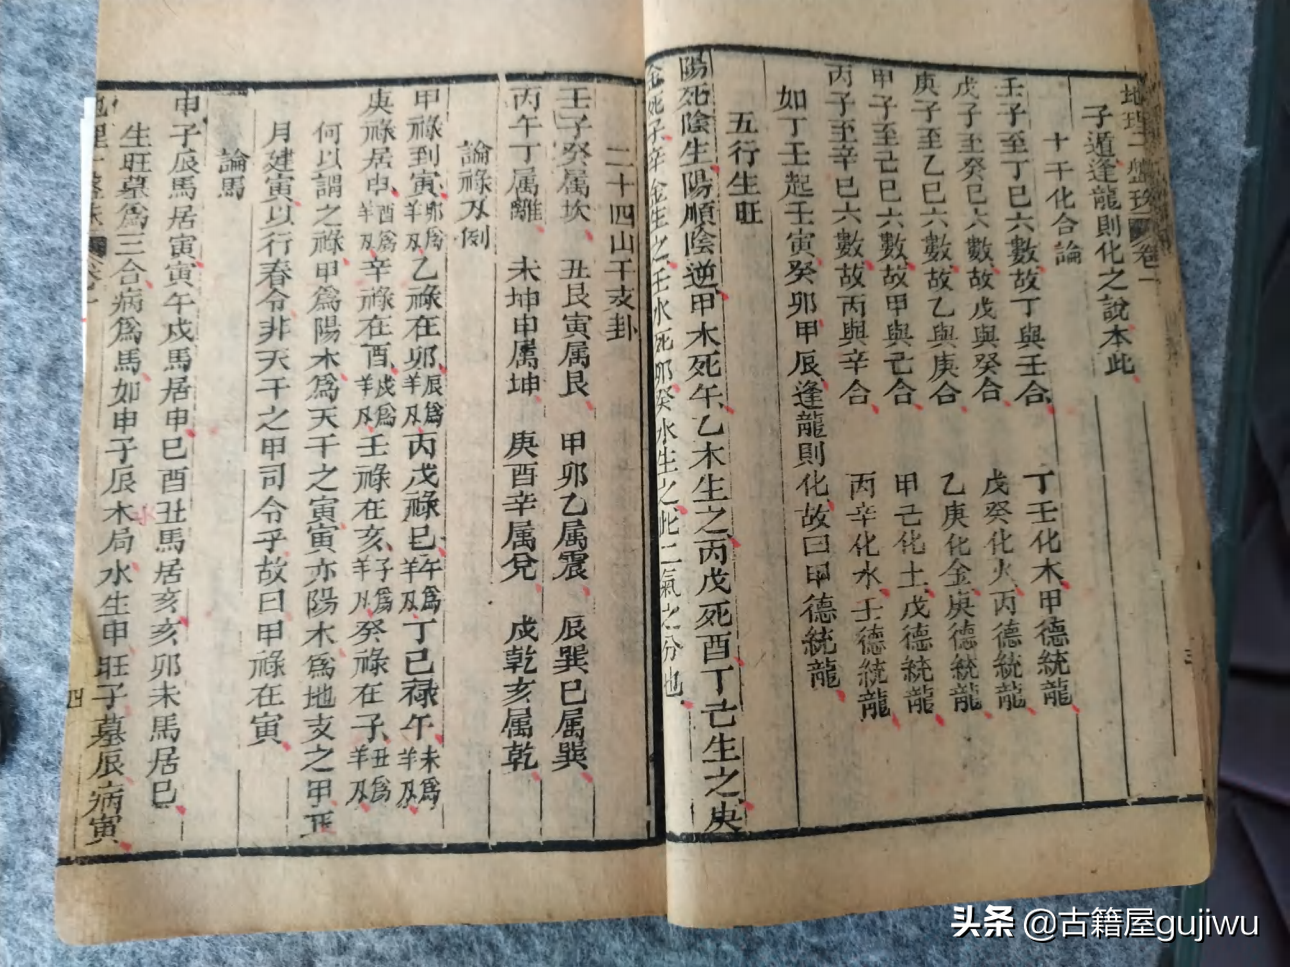 子遁逢龍則化之說本此
十干化合論
壬子至丁巳六數故丁與壬合 丁壬化木甲德統龍
戊子至癸巳六數故戊與癸合 戊癸化火丙德統龍
庚子至乙巳六數故乙與庚合 乙庚化金庚德統龍
甲子至己巳六數故甲與己合 甲己化土戊德統龍
丙子至辛巳六數故丙與辛合 丙辛化水壬德統龍
如丁壬起壬寅癸卯甲辰逢龍則化故曰甲德統龍
五行生旺
陽死陰生陽順陰逆甲木死午乙木生之丙戊死酉丁己生之庚
金死子辛金生之壬水死卯癸水生之此二氣之分也
二十四山干支卦
壬子癸属坎 丑艮寅属艮 甲卯乙属震 辰巽巳属巽
丙午丁属離 未坤申属坤 庚酉辛属兌 戌乾亥属乾
論祿刃例
甲祿到寅卯爲羊刃乙祿在卯辰爲羊刃丙戊祿巳午爲羊刃丁己祿午未爲羊刃
庚祿居申酉爲羊刃辛祿在酉戌爲羊刃壬祿在亥子爲羊刃癸祿在子丑爲羊刃
何以謂之祿甲爲陽木爲天干之寅寅亦陽木爲地支之甲正
月建寅以行春令非天干之甲司令乎故曰甲祿在寅
論馬
申子辰馬居寅寅午戌馬居申巳酉丑馬居亥亥卯未馬居巳
生旺墓爲三合病爲馬如申子辰水局水生申旺子墓辰病寅
四
头条 @古籍屋gujiwu